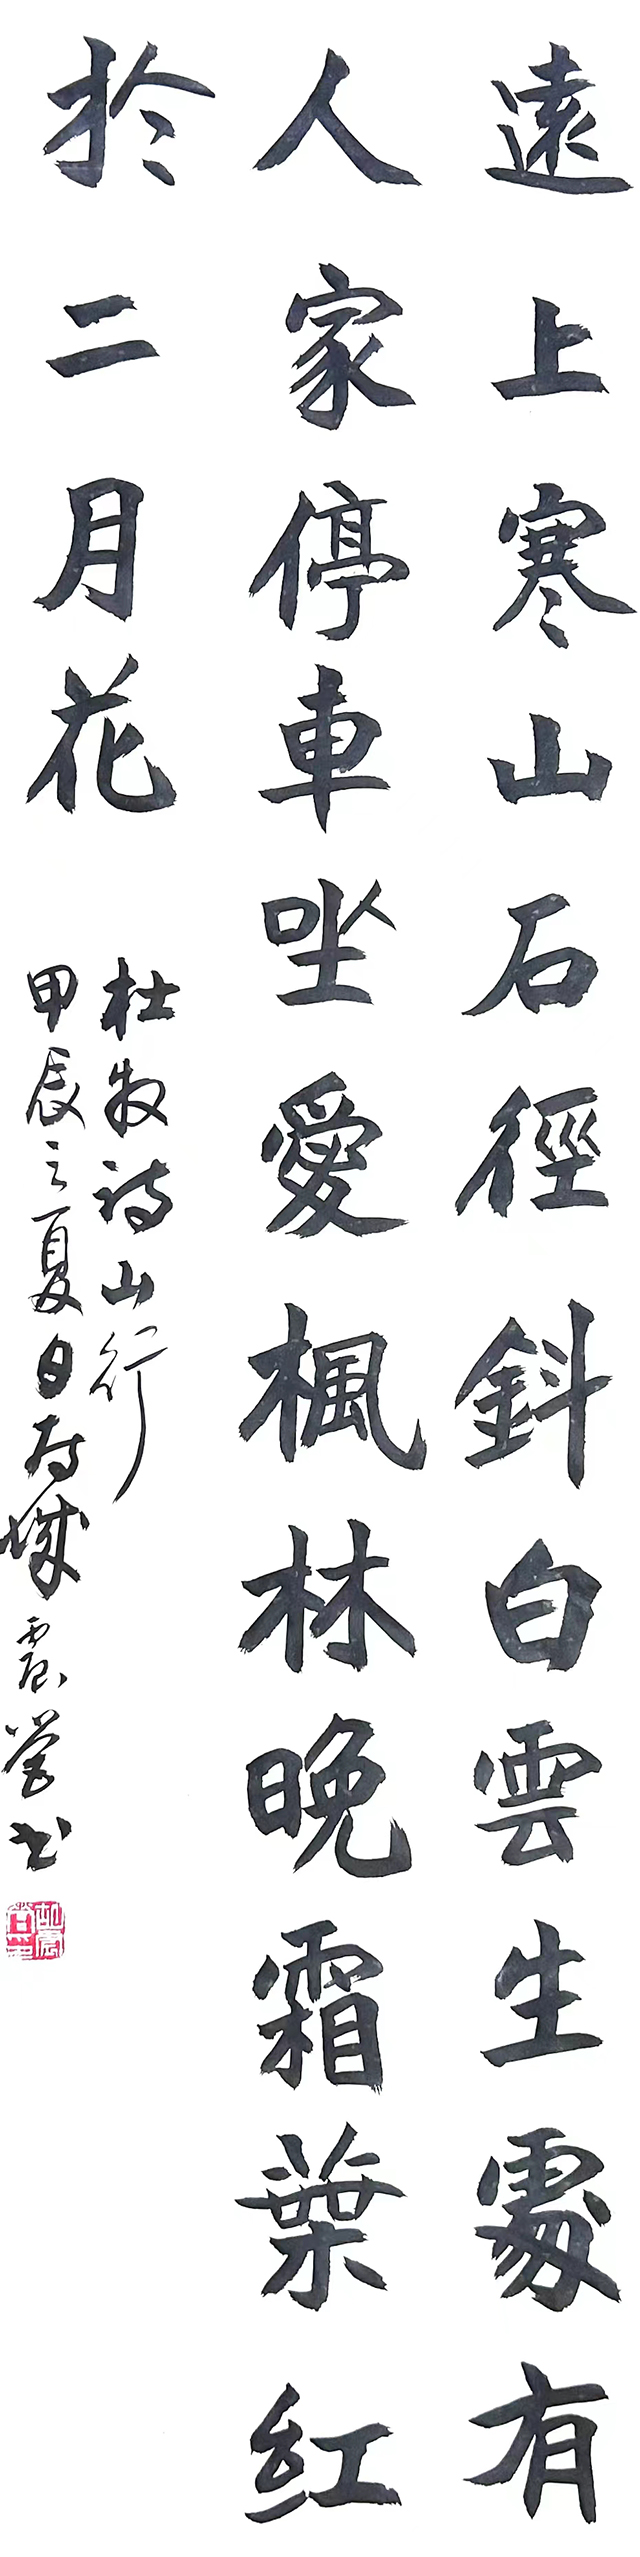 遠上寒山石徑斜白雲生處有
人家停車坐愛楓林晚霜葉紅
於二月花
杜牧詩山行
甲辰之夏日於城
營书